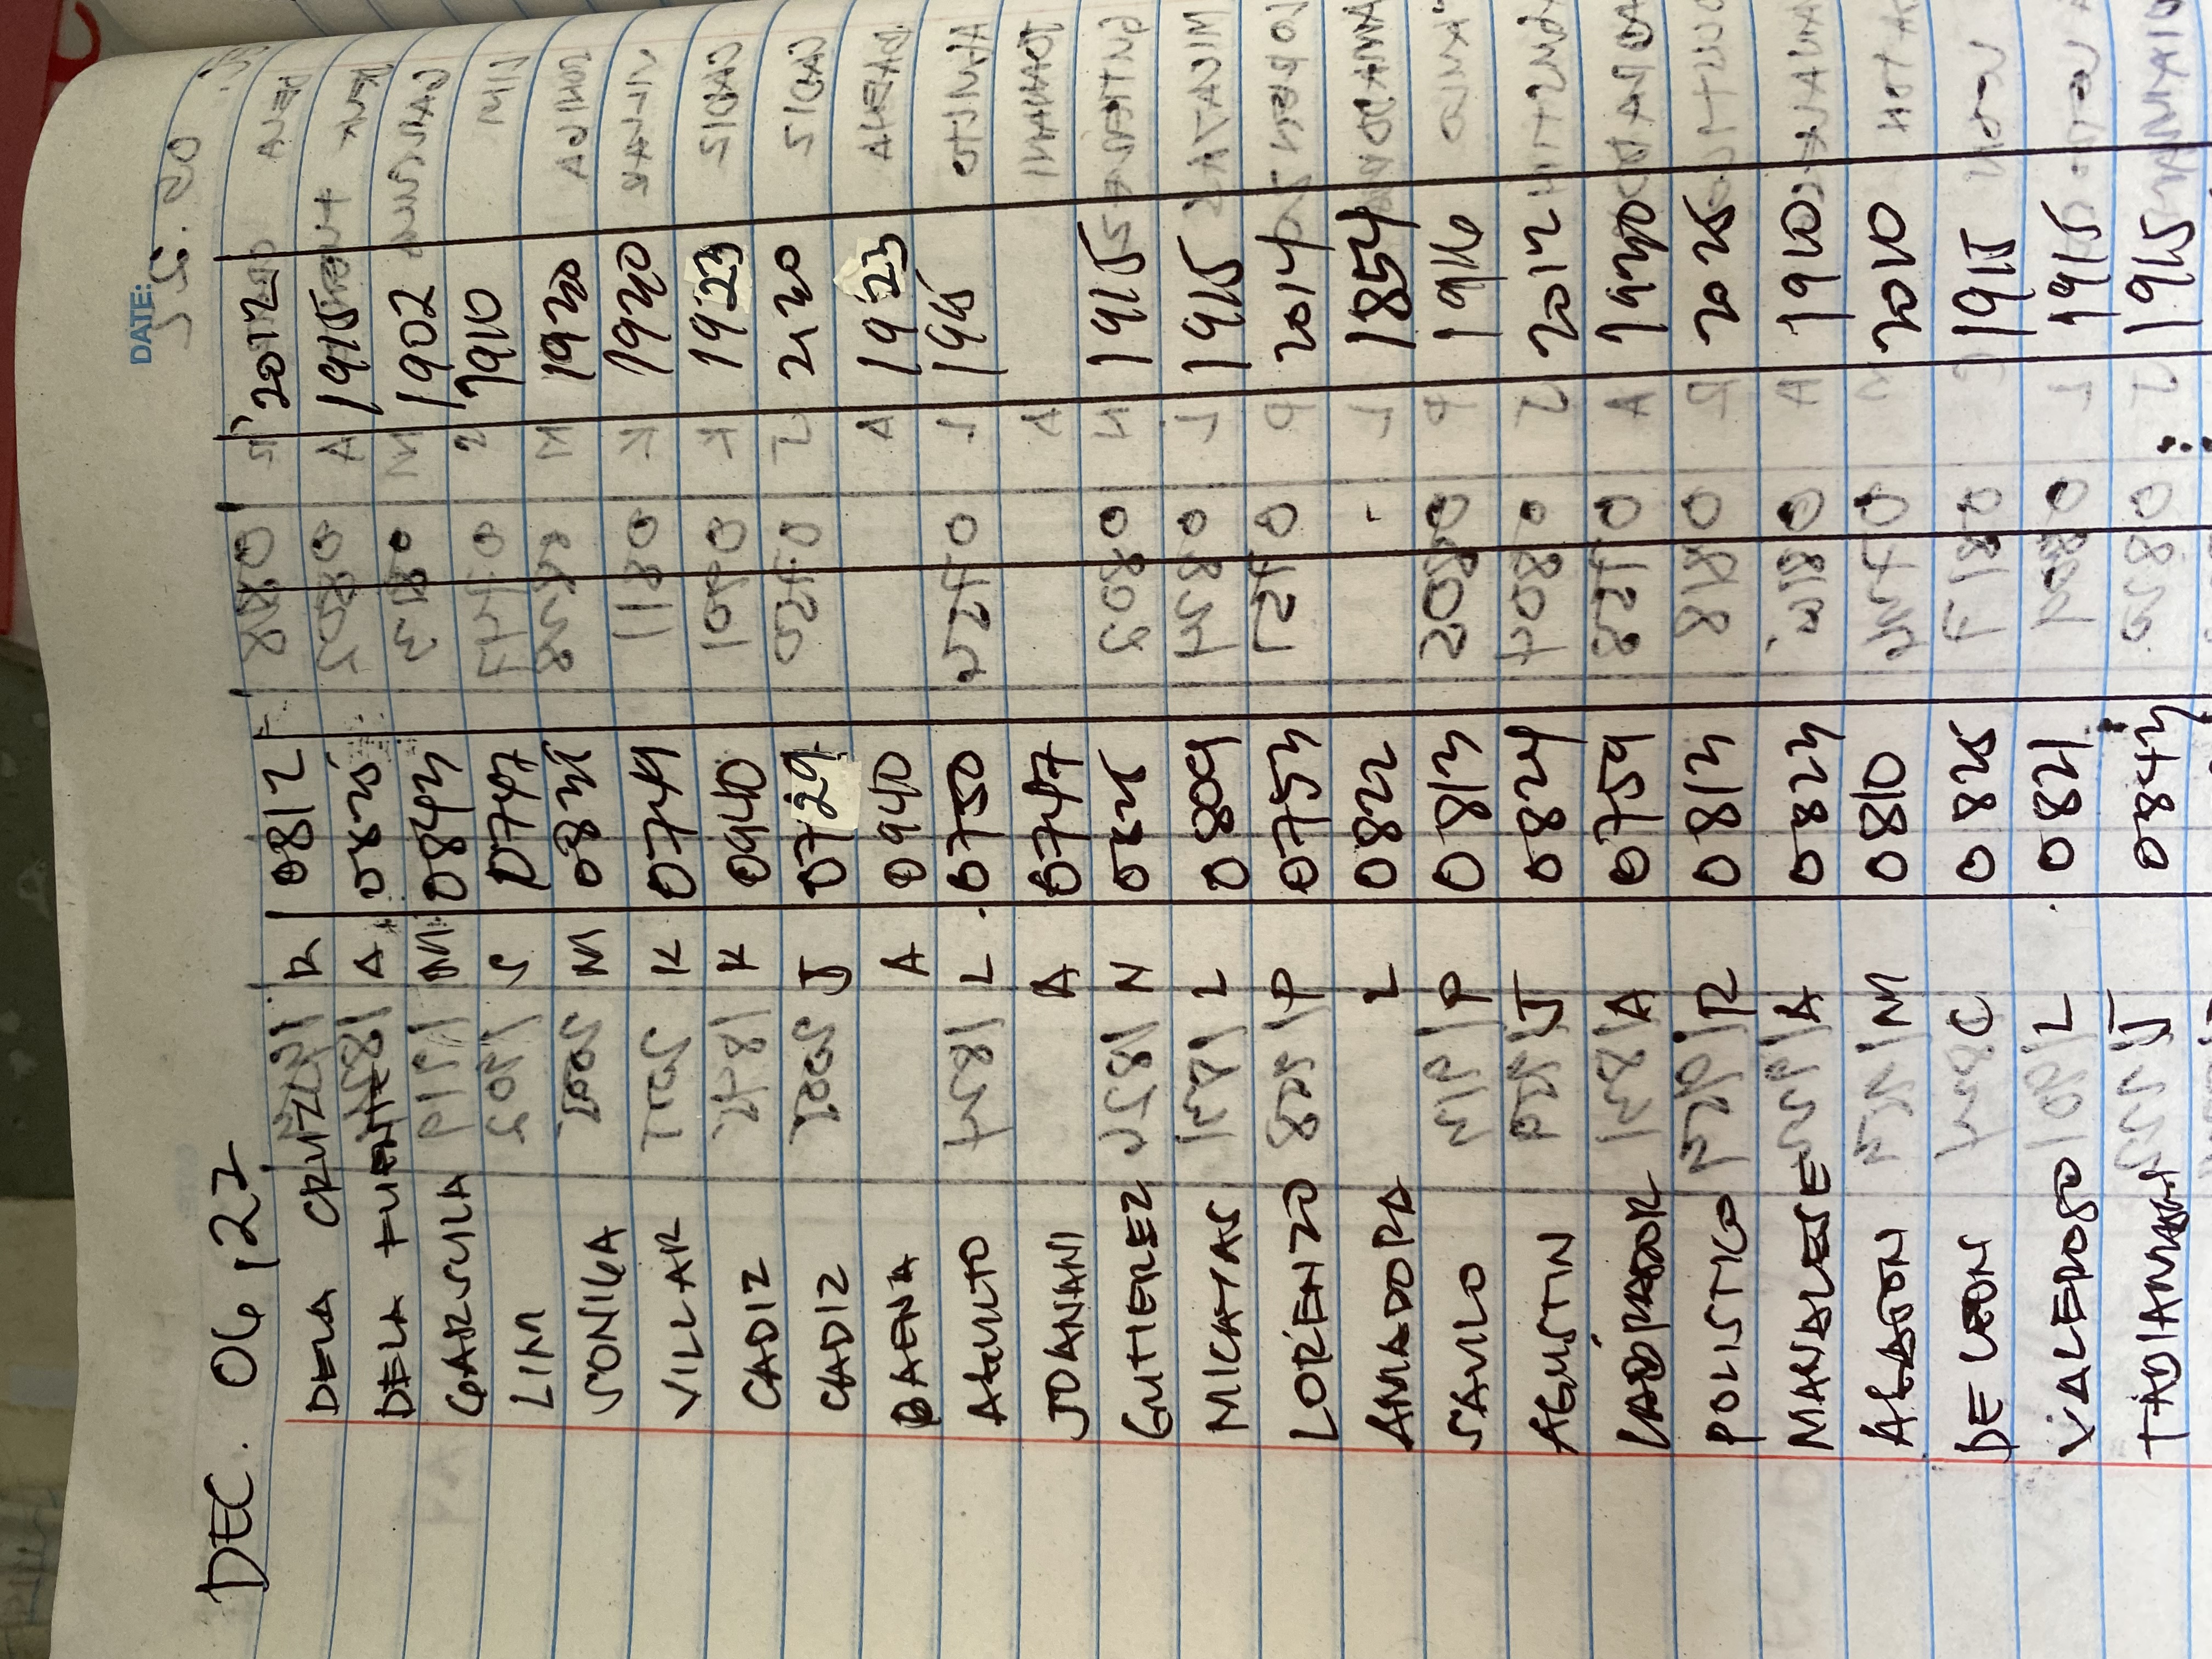 DATE:
DEC. 06, 22
DELA CRUZ R 0812 2012
DELA FUENTE A 0825 1915
GARSULA M 0843 1902
LIM S 0747 1910
SONIGA M 1930
VILLAR K 0749 1930
CADIZ K 0940 1923
CADIZ J 0729 2130
BAENA A 0940 1923
AGULTO L 0750 1915
JOANANI A 0747
GUTIEREZ N 0825 1915
MICAYAS L 0809 1915
LORENZO P 0753 2014
AMADORA L 0822 1854
SAULO P 0813 1916
AGUSTIN J 0824 2012
LABRADOR A 0759 1930
POLISTICO R 0813 2025
MANALESE A 0823 1910
AGATON M 0810 2010
DE LEON C 0825 1915
VALEROSO L 0821 1915
J 0843 1915